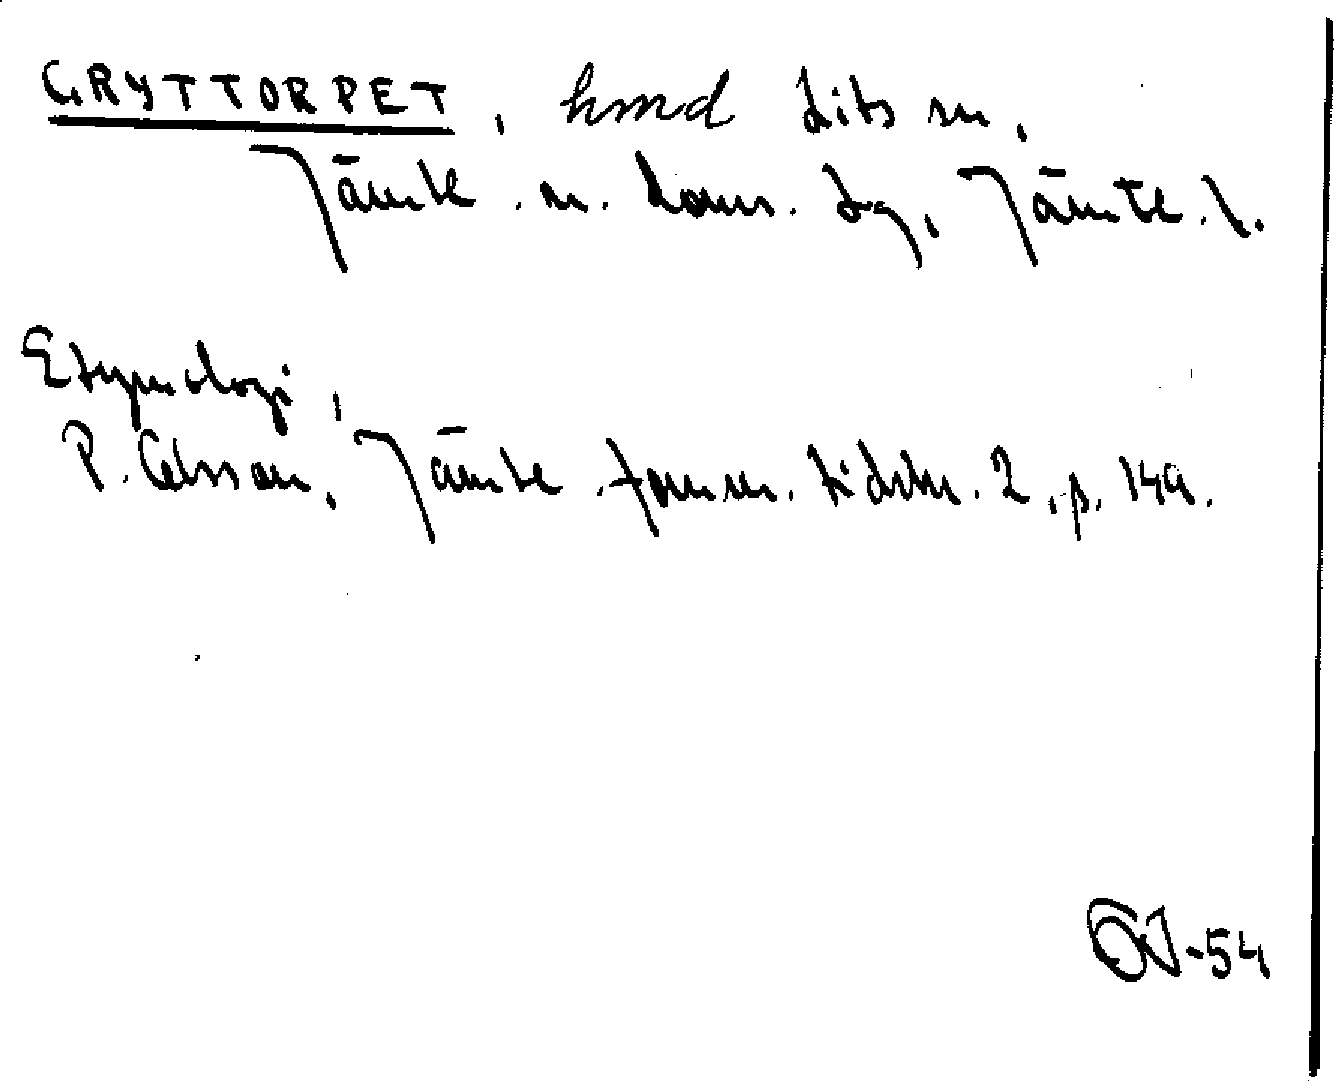 GRYTTORPET, hmd Lits sn,
Jämtl. n. doms. tg, Jämtl. l.
Etymologi,
P. Olsson, Jämtl. fornm. tidskr. 2, p. 149.
-54